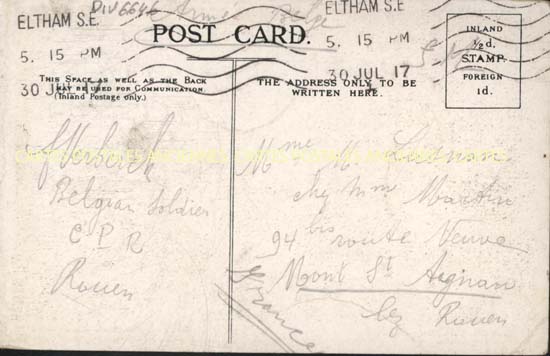 ELTHAM S.E.
5. 15 PM
30 JUL 17
ELTHAM S.E
5. 15 PM
30 JUL 17
POST CARD.
THIS SPACE AS WELL AS THE BACK
MAY BE USED FOR COMMUNICATION.
(Inland Postage only.)
THE ADDRESS ONLY TO BE
WRITTEN HERE.
INLAND
½d.
STAMP.
FOREIGN
1d.
Belgian Soldier
C P R
Rouen
Mme
chez Mme Martin
94 bis route Neuve
Mont St Aignan
lez Rouen
France